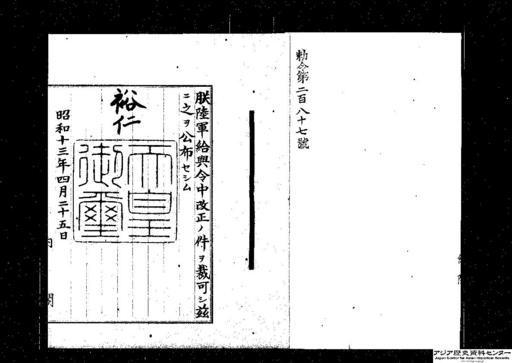 勅令第二百八十七號
朕陸軍給與令中改正ノ件ヲ裁可シ玆
ニ之ヲ公布セシム
裕仁
天皇
御璽
昭和十三年四月二十五日
内閣
アジア歴史資料センター
Japan Center for Asian Historical Records